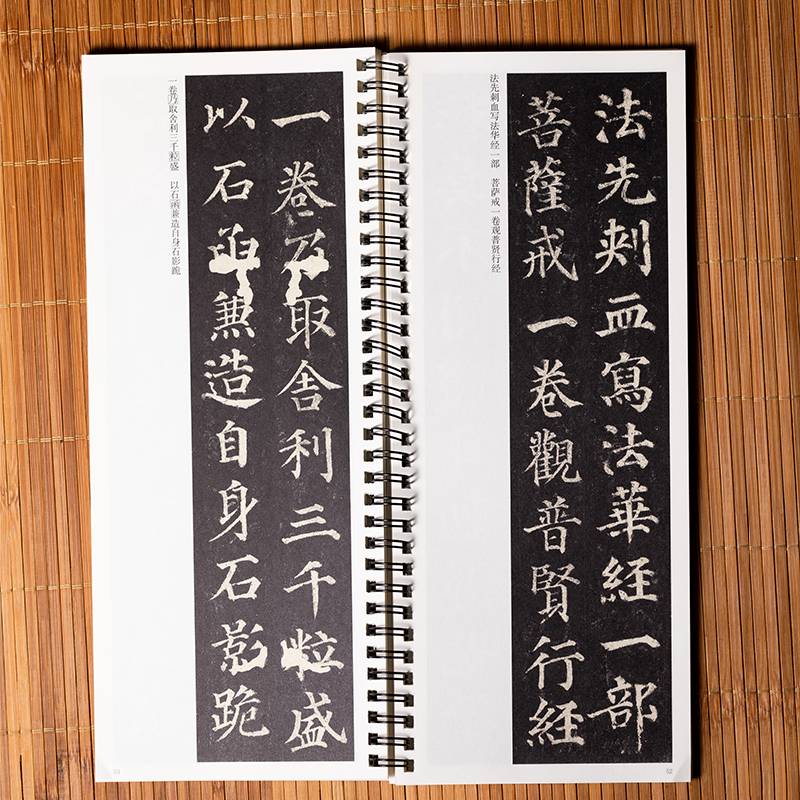 法先刺血寫法華經一部
菩薩戒一卷觀普賢行經
法先刺血写法华经一部 菩萨戒一卷观普贤行经
52
一卷乃取舍利三千粒盛
以石函兼造自身石影跪
一卷[乃]取舍利三千[粒]盛 以石[函]兼造自身石影跪
53